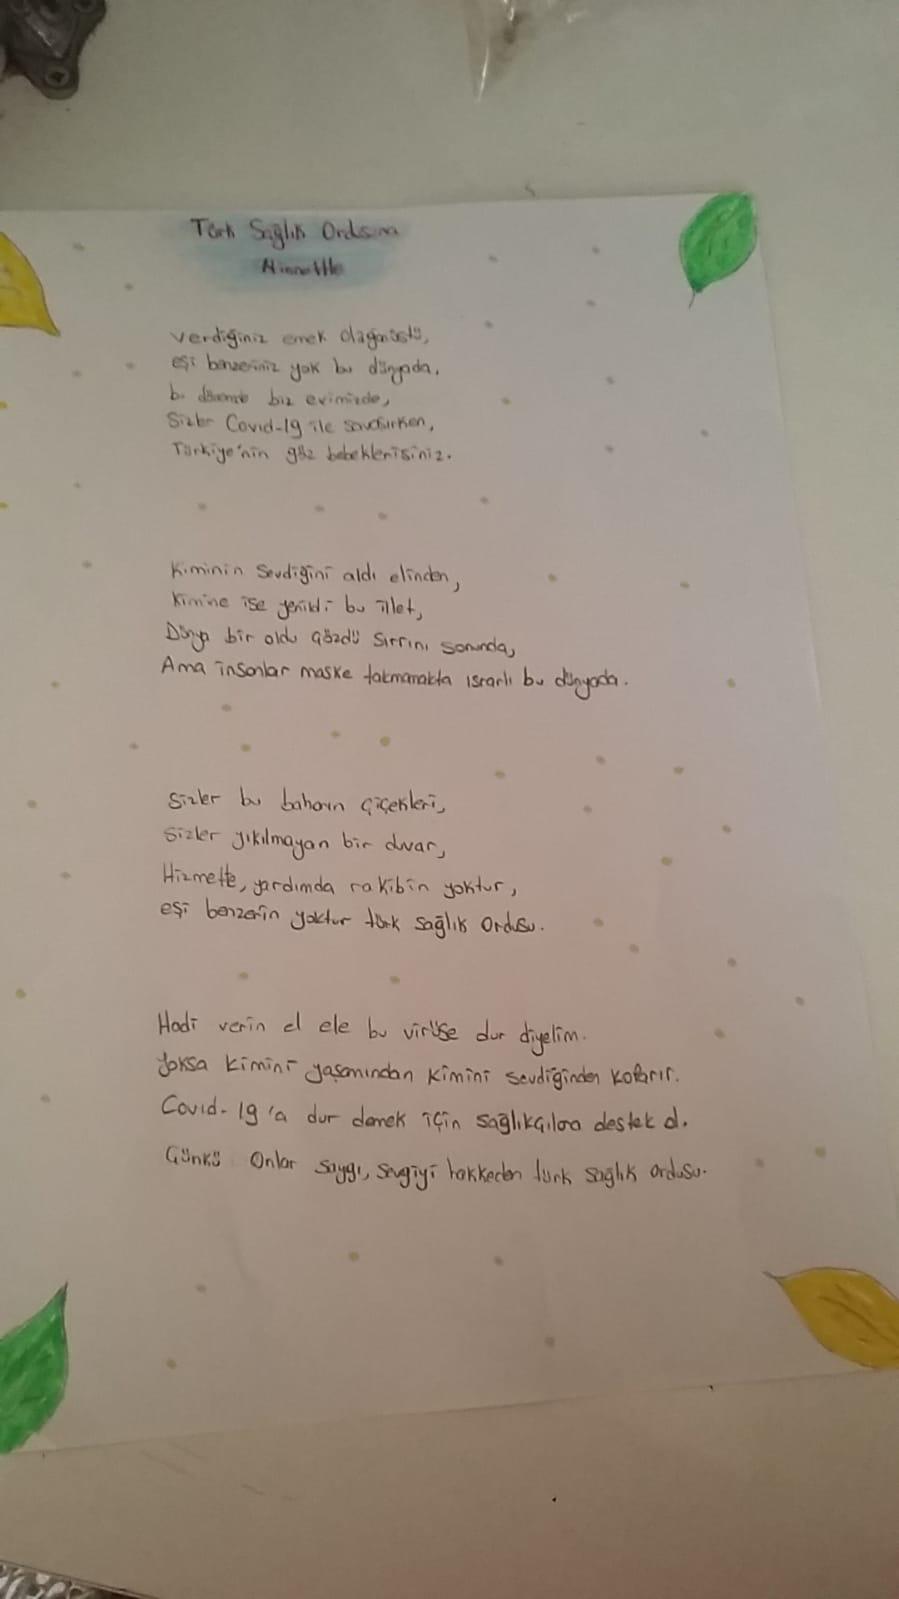 Türk Sağlık Ordusuna
Minnetle
verdiğiniz emek olağanüstü,
eşi benzeriniz yok bu dünyada,
bu dönemde biz evimizde,
Sizler Covid-19 ile savaşırken,
Türkiye'nin göz bebeklerisiniz.
Kiminin Sevdiğini aldı elinden,
Kimine ise yenildi bu illet,
Dünya bir oldu çözdü Sırrını sonunda,
Ama insanlar maske takmamakta ısrarlı bu dünyada.
Sizler bu baharın çiçekleri,
Sizler yıkılmayan bir duvar,
Hizmette, yardımda rakibin yoktur,
eşi benzerin yoktur türk sağlık Ordusu.
Hadi verin el ele bu virüse dur diyelim.
Yoksa kimini yaşamından kimini sevdiğinden koparır.
Covid-19'a dur demek için sağlıkçılara destek ol.
Çünkü Onlar saygı, sevgiyi hakkeden türk sağlık ordusu.